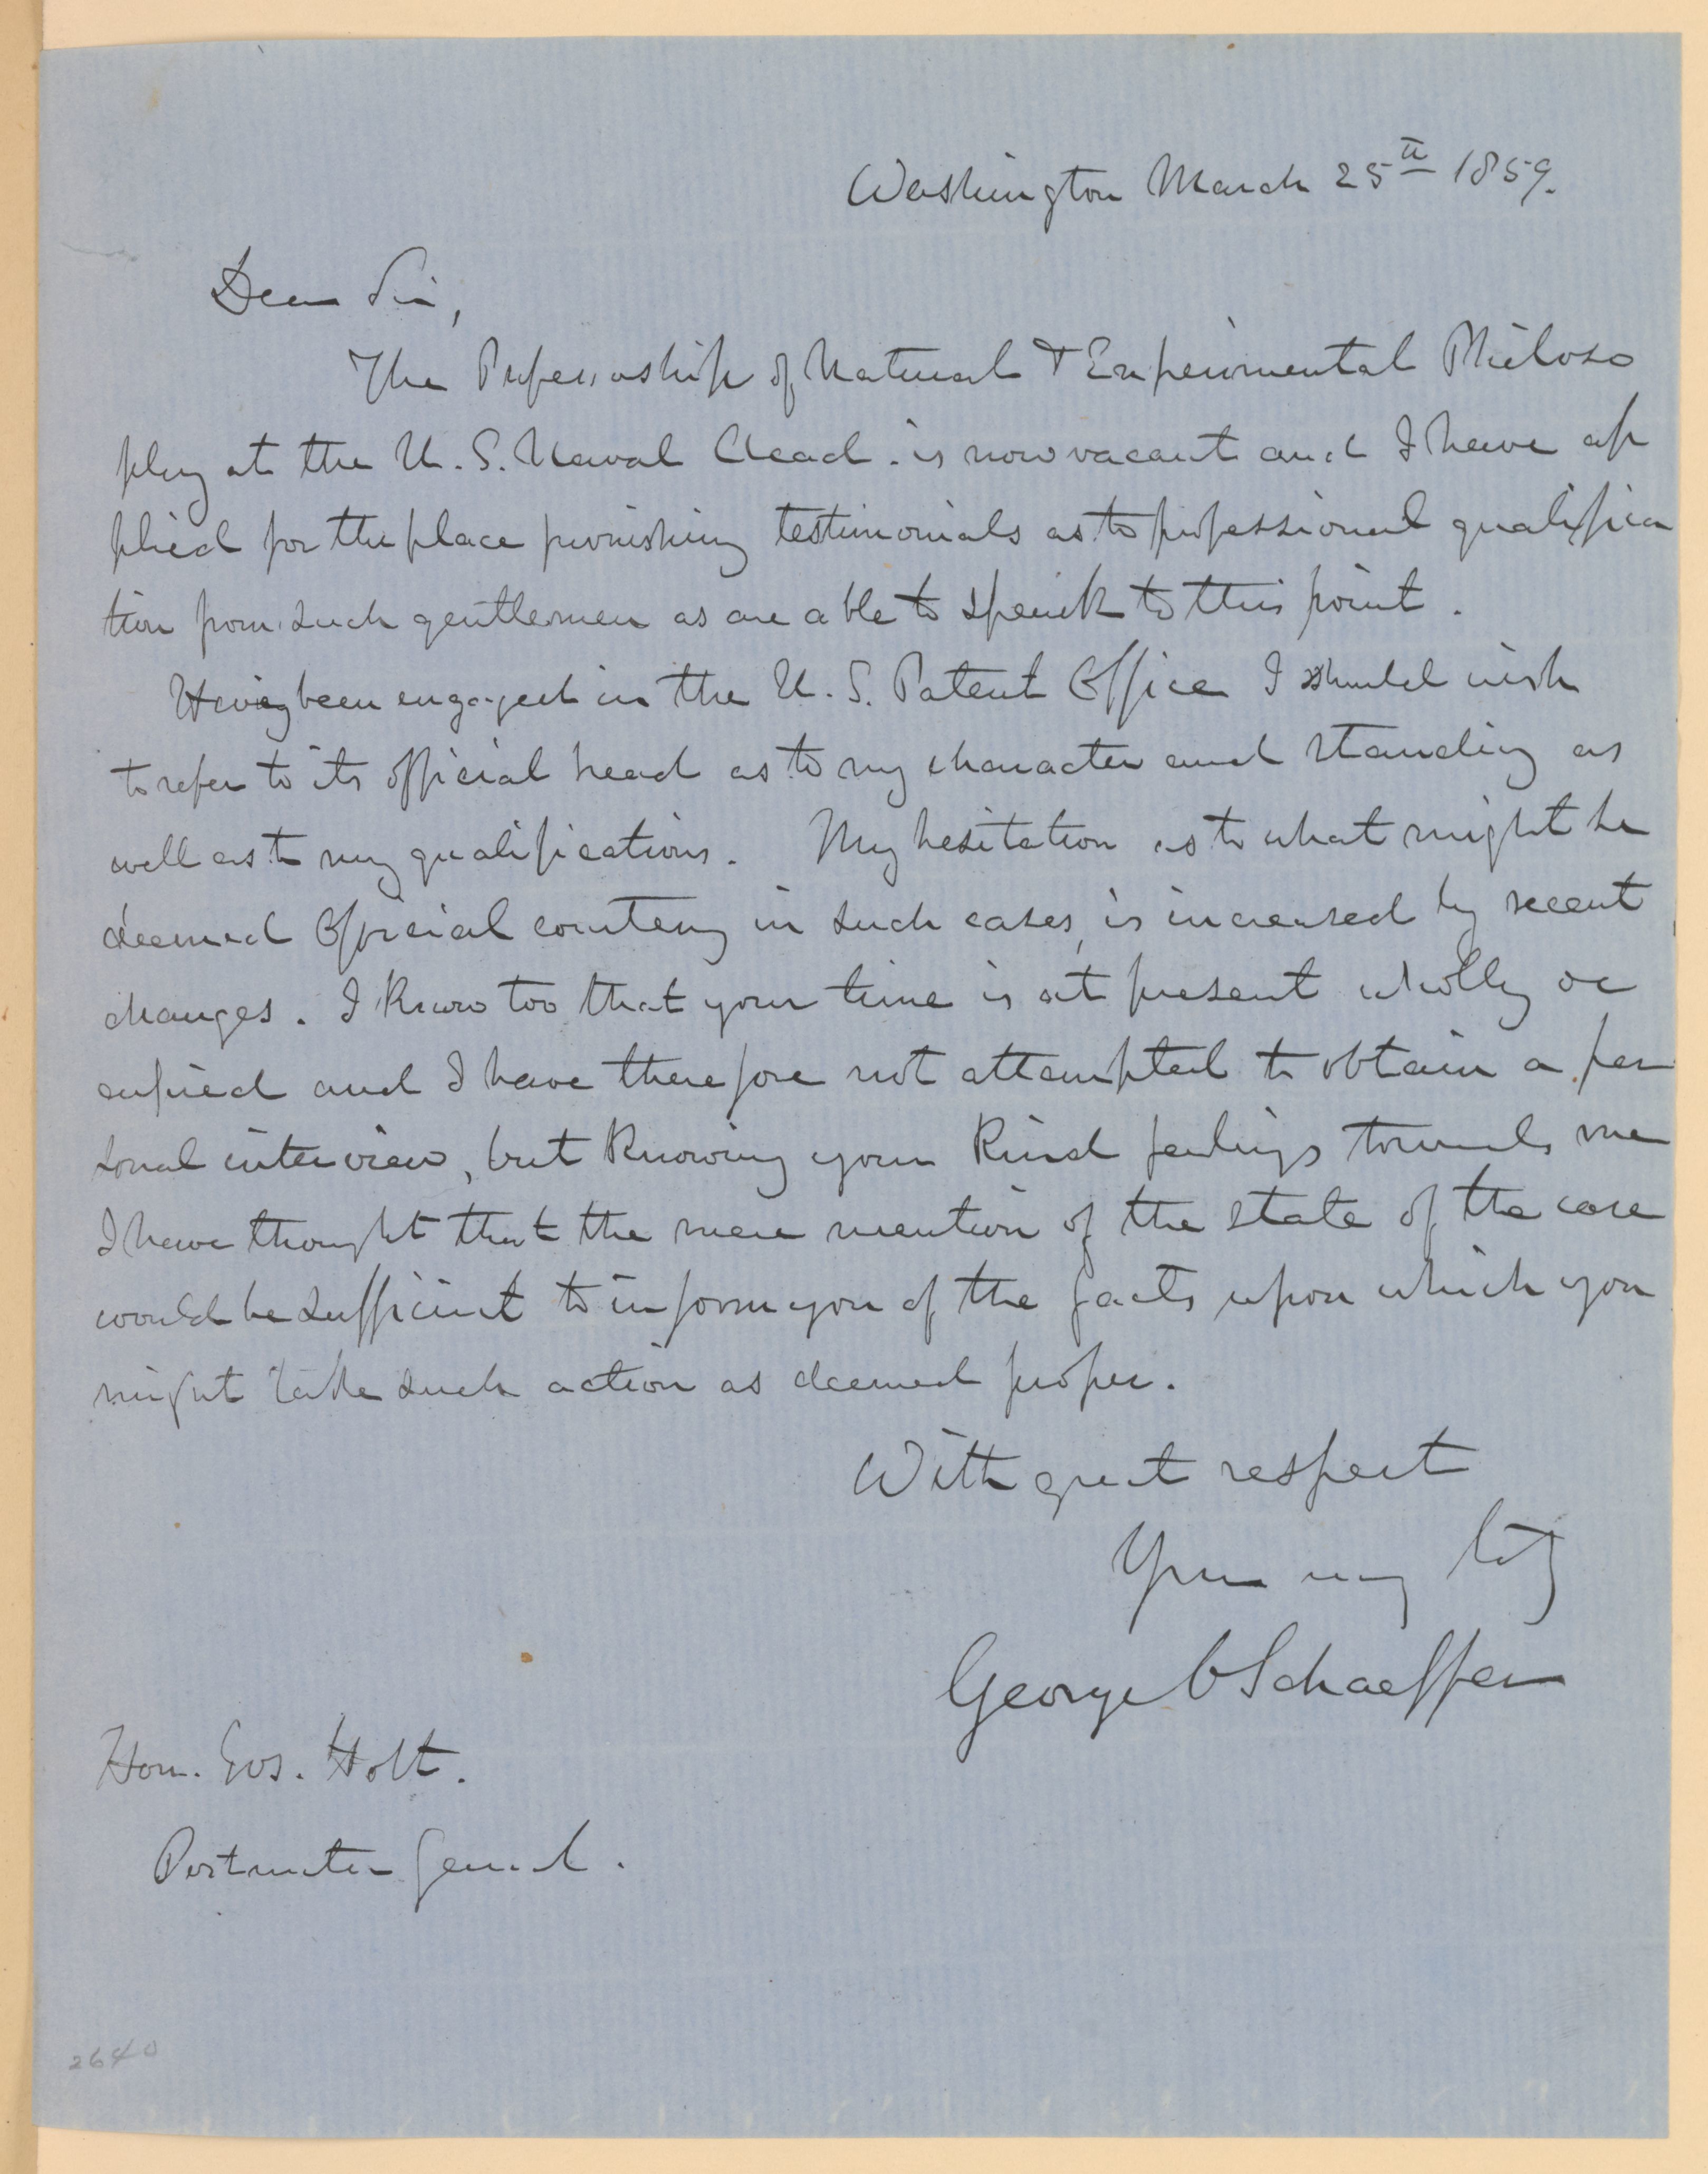 Washington March 25th 1859.
Dear Sir,
The Professorship of Natural & Experimental Philoso
phy at the U. S. Naval Acad. is now vacant and I have ap
plied for the place furnishing testimonials as to professional qualifica
tion from such gentlemen as are able to speak to this point.
Having been engaged in the U. S. Patent Office I should wish
to refer to its official head as to my character and standing as
well as to my qualifications. My hesitation as to what might be
deemed Official courtesy in such cases, is increased by recent
changes. I know too that your time is at present wholly oc
cupied and I have therefore not attempted to obtain a per
sonal interview, but knowing your kind feelings towards me
I have thought that the mere mention of the state of the case
would be sufficient to inform you of the facts upon which you
might take such action as deemed proper.
With great respect
Your
George C Schaeffer
Hon. Jos. Holt.
Postmaster General.
2640